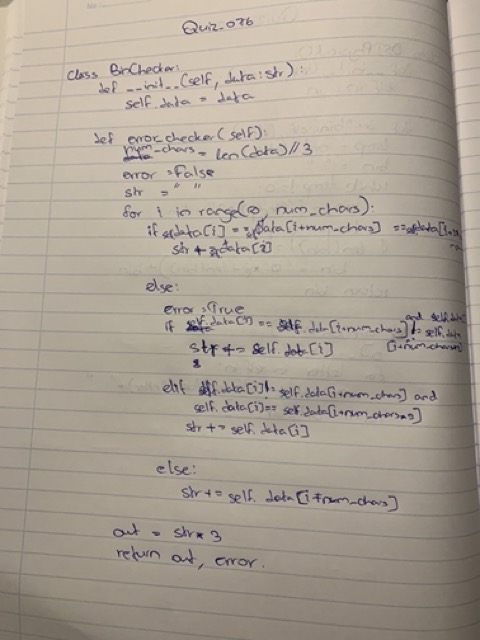 Quiz_076
class BinChecker:
def __init__(self, data:str):
self.data = data
def error_checker(self):
num_chars = len(data)//3
error = False
str = " "
for i in range(0, num_chars):
if data[i] == data[i+num_chars] ==
str + data[i]
else:
error = True
if self.data[i] == self.data[i+num_chars] and self.data != self.data [i+num_chars
str += self.data[i]
elif self.data[i] != self.data[i+num_chars] and
self.data[i] == self.data[i+num_chars*2]
str += self.data[i]
else:
str += self.data[i+num_chars]
out = str*3
return out, error.